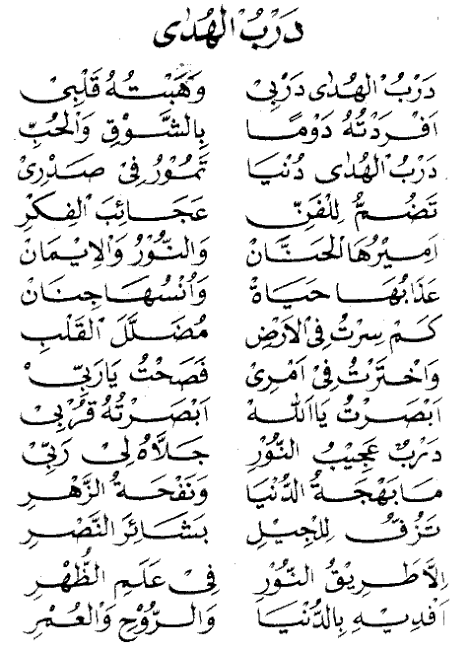 دَرْبُ الْهُدٰى
دَرْبُ الْهُدٰى دَرْبِيْ وَهَبْتُهُ قَلْبِيْ
اَفْرَدْتُهُ دَوْمًا بِالشَّوْقِ وَالْحُبِّ
دَرْبُ الْهُدٰى دُنْيَا تَمُوْرُ فِيْ صَدْرِيْ
تَضُمُّ لِلْفَنِّ عَجَائِبَ الْفِكْرِ
اَمِيْرُهَا الْحَنَّانْ وَالنُّوْرُ وَالْاِيْمَانْ
عَذَابُهَا حَيَاةْ وَاُنْسُهَا جِنَانْ
كَمْ سِرْتُ فِى الْاَرْضِ مُضَلَّلَ الْقَلْبِ
وَاخْتَرْتُ فِيْ اَمْرِيْ فَصَحْتُ يَارَبِّيْ
اَبْصَرْتُ يَااَللهْ اَبْصَرْتُهُ قُرْبِيْ
دَرْبٌ عَجِيْبُ النُّوْرِ جَلَاَّهُ لِيْ رَبِّيْ
مَابَهْجَةُ الدُّنْيَا وَنَفْحَةُ الزَّهْرِ
تَزُفُّ لِلْجِيْلِ بَشَائِرَ النَّصْرِ
اِلَّا طَرِيْقُ النُّوْرِ فِيْ عَلَمِ الظُّهْرِ
اَفْدِيْهِ بِالدُّنْيَا وَالرُّوْحِ وَالْعُمْرِ